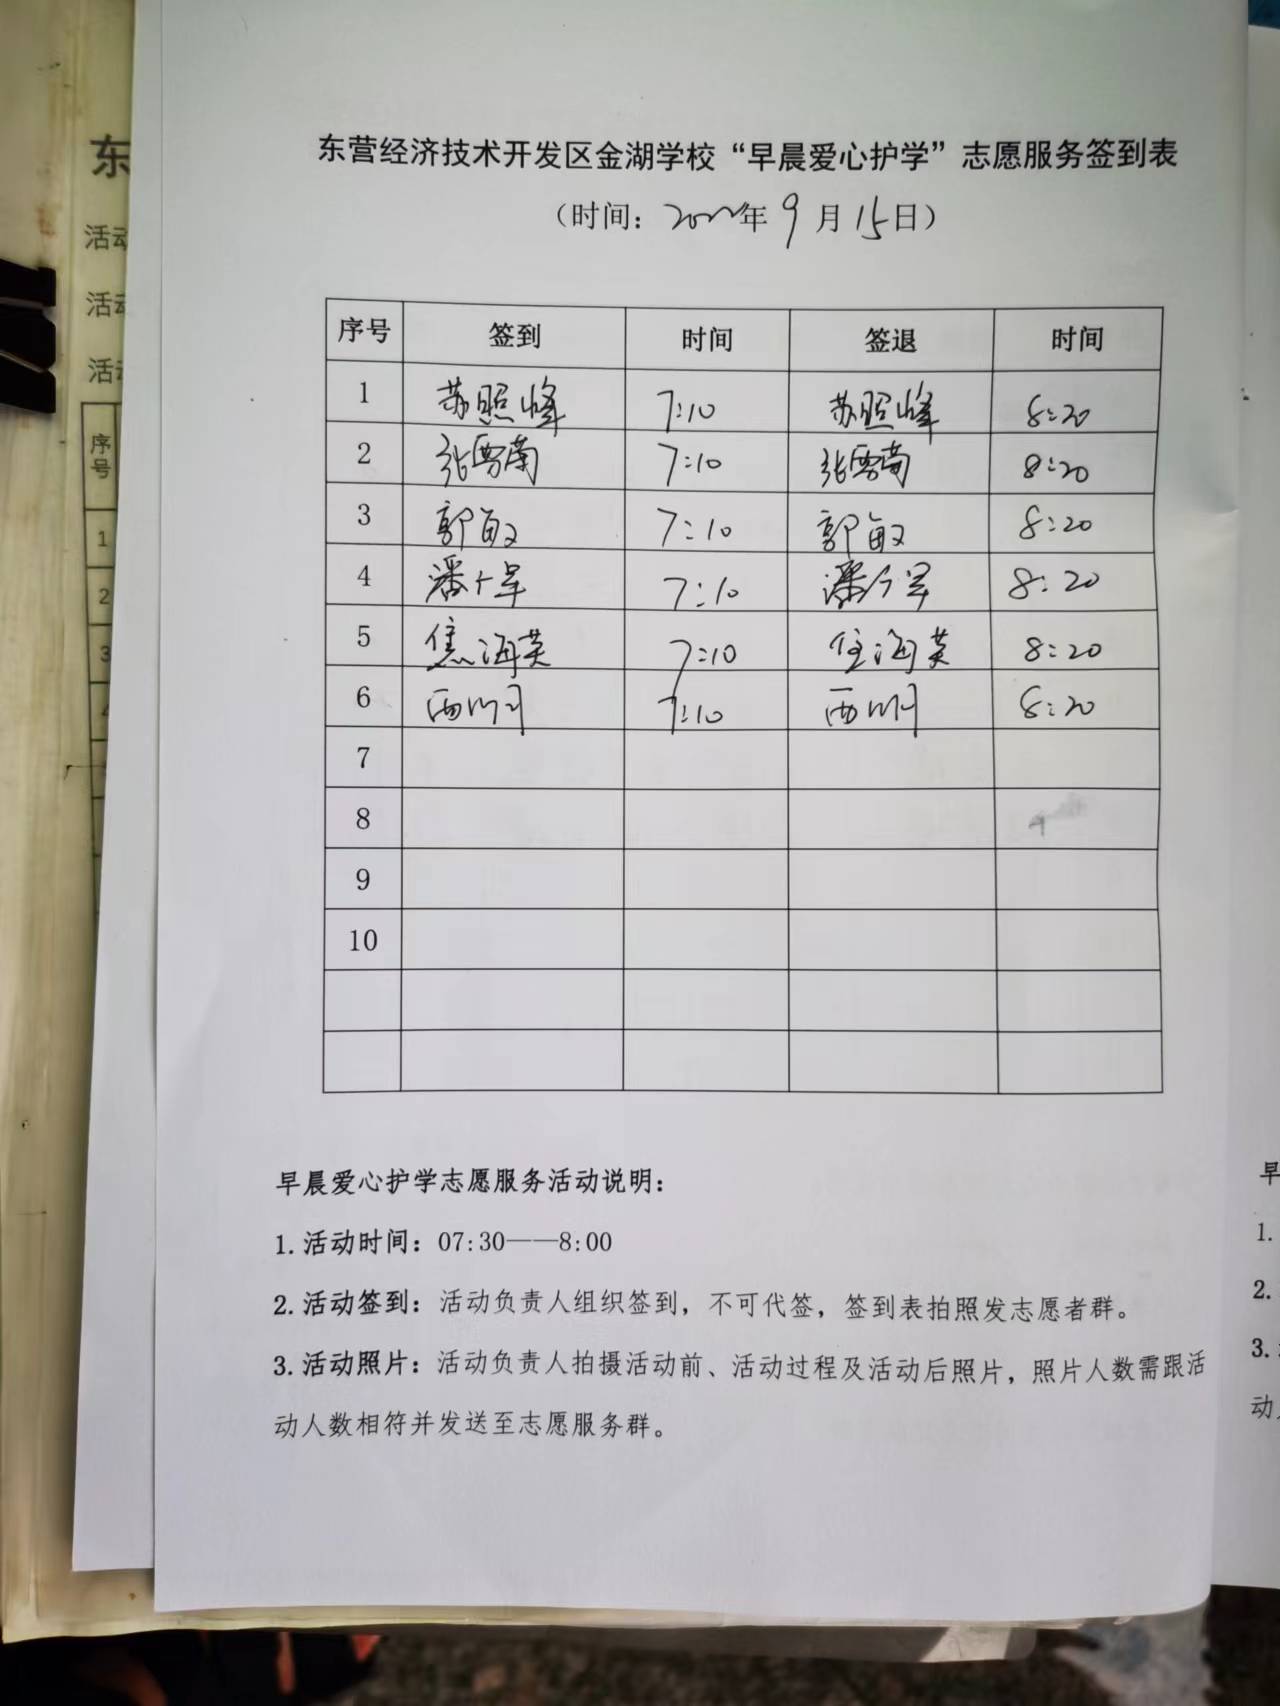 东营经济技术开发区金湖学校“早晨爱心护学”志愿服务签到表
（时间：2022年 9 月 15日）
序号 签到 时间 签退 时间
1 苏照峰 7:10 苏照峰 8:20
2 张雪南 7:10 张雪南 8:20
3 郭敏 7:10 郭敏 8:20
4 潘 7:10 潘 8:20
5 焦海英 7:10 焦海英 8:20
6 7:10 8:20
7
8
9
10
早晨爱心护学志愿服务活动说明：
1.活动时间：07:30——8:00
2.活动签到：活动负责人组织签到，不可代签，签到表拍照发志愿者群。
3.活动照片：活动负责人拍摄活动前、活动过程及活动后照片，照片人数需跟活
动人数相符并发送至志愿服务群。
东
活动
活动
活动
序号
1
2
3
早
1.
2.
3.
动